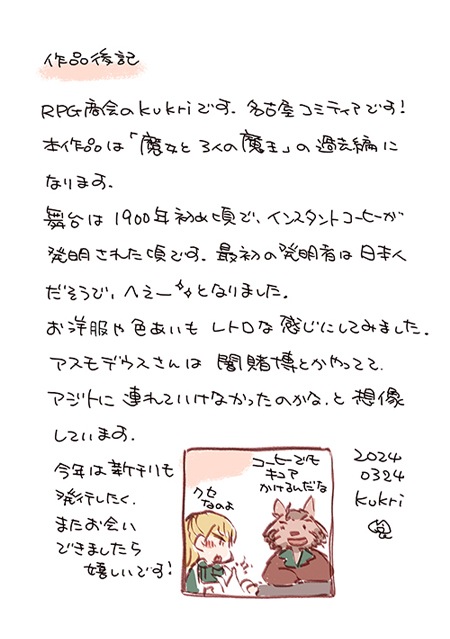 作品後記
RPG商会のkukriです。名古屋コミティアです!
本作品は「魔女と3人の魔王」の過去編に
なります。
舞台は1900年初め頃で、インスタントコーヒーが
発明された頃です。最初の発明者は日本人
だそうで、へぇー✨となりました。
お洋服や色あいもレトロな感じにしてみました。
アスモデウスさんは闇賭博とかやってて、
アジトに連れていけなかったのかな、と想像
しています。
今年は新刊も
発行したく、
またお会い
できましたら
嬉しいです!
コーヒーでも
キュア
かけるんだな
クセ
なのよ
2024
0324
kukri